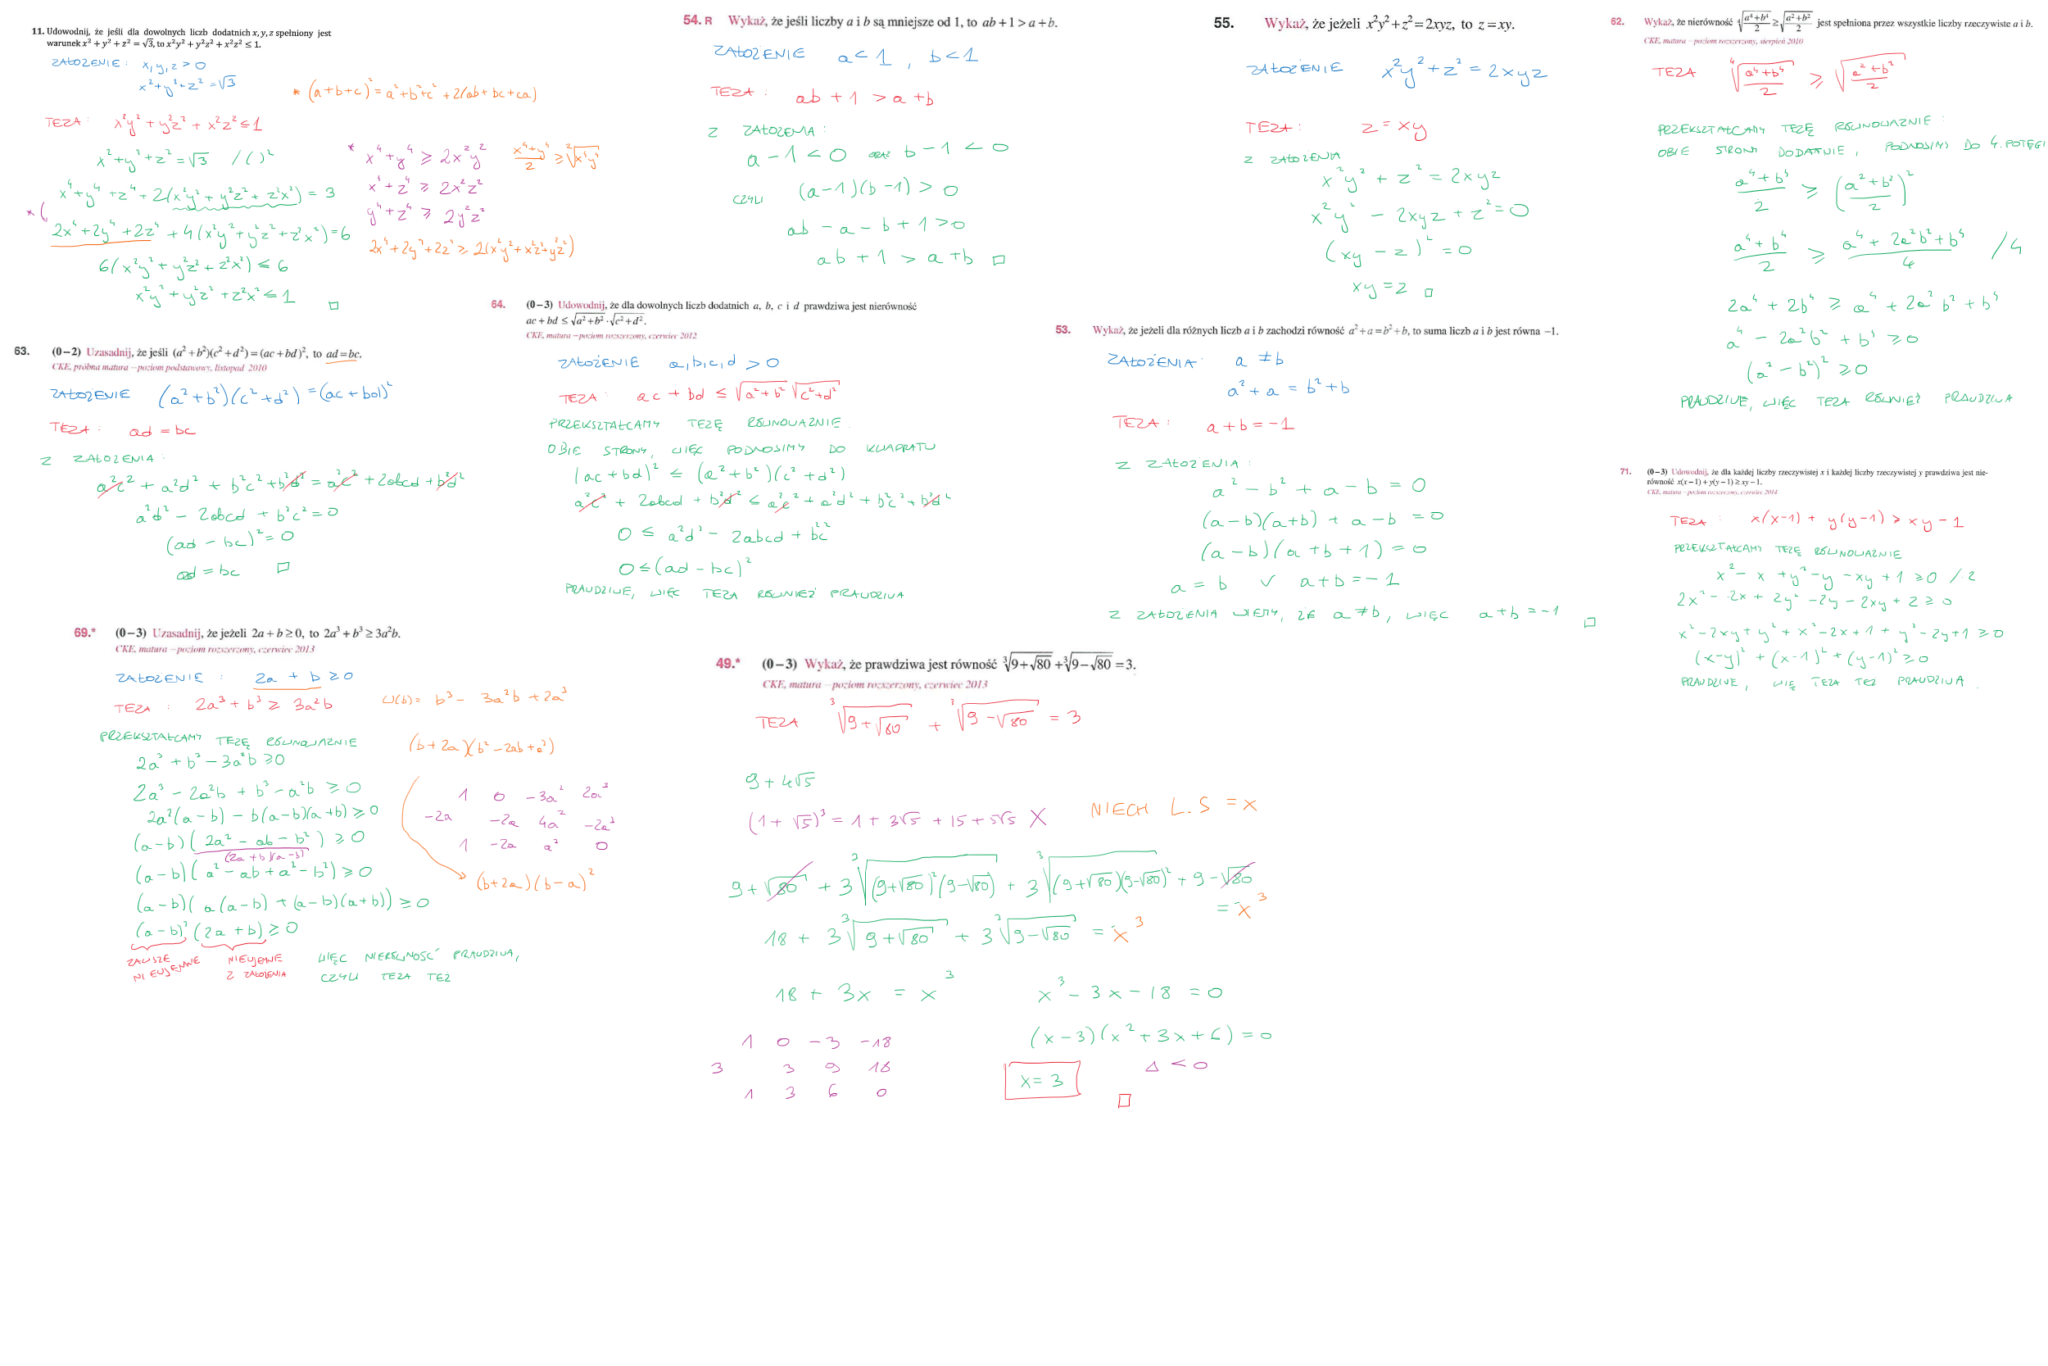 11. Udowodnij, że jeśli dla dowolnych liczb dodatnich x, y, z spełniony jest
warunek x² + y² + z² = √3, to x²y² + y²z² + x²z² ≤ 1.
ZAŁOŻENIE: x, y, z > 0
x² + y² + z² = √3
* (a+b+c)² = a²+b²+c² + 2(ab+bc+ca)
TEZA: x²y² + y²z² + x²z² ≤ 1
x² + y² + z² = √3 /()²
x⁴ + y⁴ + z⁴ + 2(x²y² + y²z² + z²x²) = 3
2x⁴ + 2y⁴ + 2z⁴ + 4(x²y² + y²z² + z²x²) = 6
6(x²y² + y²z² + z²x²) ≤ 6
x²y² + y²z² + z²x² ≤ 1 □
* x⁴ + y⁴ ≥ 2x²y²
x⁴ + z⁴ ≥ 2x²z²
y⁴ + z⁴ ≥ 2y²z²
2x⁴ + 2y⁴ + 2z⁴ ≥ 2(x²y² + x²z² + y²z²)
(x⁴+y⁴)/2 ≥ ²√(x⁴y⁴)
54. R Wykaż, że jeśli liczby a i b są mniejsze od 1, to ab + 1 > a + b.
ZAŁOŻENIE a < 1 , b < 1
TEZA: ab + 1 > a + b
Z ZAŁOŻENIA:
a - 1 < 0 b - 1 < 0
CZYLI (a-1)(b-1) > 0
ab - a - b + 1 > 0
ab + 1 > a + b □
55. Wykaż, że jeżeli x²y² + z² = 2xyz, to z = xy.
ZAŁOŻENIE x²y² + z² = 2xyz
TEZA: z = xy
Z ZAŁOŻENIA
x²y² + z² = 2xyz
x²y² - 2xyz + z² = 0
(xy - z)² = 0
xy = z □
62. Wykaż, że nierówność ⁴√((a⁴+b⁴)/2) ≥ √((a²+b²)/2) jest spełniona przez wszystkie liczby rzeczywiste a i b.
CKE, matura – poziom rozszerzony, sierpień 2010
TEZA ⁴√((a⁴+b⁴)/2) ≥ √((a²+b²)/2)
PRZEKSZTAŁCAMY TEZĘ RÓWNOWAŻNIE:
OBIE STRONY DODATNIE, PODNOSIMY DO 4. POTĘGI
(a⁴+b⁴)/2 ≥ ((a²+b²)/2)²
(a⁴+b⁴)/2 ≥ (a⁴ + 2a²b² + b⁴)/4 /4
2a⁴ + 2b⁴ ≥ a⁴ + 2a²b² + b⁴
a⁴ - 2a²b² + b⁴ ≥ 0
(a² - b²)² ≥ 0
PRAWDZIWE, WIĘC TEZA RÓWNIEŻ PRAWDZIWA
63. (0–2) Uzasadnij, że jeśli (a² + b²)(c² + d²) = (ac + bd)², to ad = bc.
CKE, próbna matura – poziom podstawowy, listopad 2010
ZAŁOŻENIE (a² + b²)(c² + d²) = (ac + bd)²
TEZA: ad = bc
Z ZAŁOŻENIA:
a²c² + a²d² + b²c² + b²d² = a²c² + 2abcd + b²d²
a²d² - 2abcd + b²c² = 0
(ad - bc)² = 0
ad = bc □
64. (0–3) Udowodnij, że dla dowolnych liczb dodatnich a, b, c i d prawdziwa jest nierówność
ac + bd ≤ √(a² + b²) · √(c² + d²).
CKE, matura – poziom rozszerzony, czerwiec 2012
ZAŁOŻENIE a, b, c, d > 0
TEZA: ac + bd ≤ √(a² + b²) √(c² + d²)
PRZEKSZTAŁCAMY TEZĘ RÓWNOWAŻNIE.
OBIE STRONY, WIĘC PODNOSIMY DO KWADRATU
(ac + bd)² ≤ (a² + b²)(c² + d²)
a²c² + 2abcd + b²d² ≤ a²c² + a²d² + b²c² + b²d²
0 ≤ a²d² - 2abcd + b²c²
0 ≤ (ad - bc)²
PRAWDZIWE, WIĘC TEZA RÓWNIEŻ PRAWDZIWA
53. Wykaż, że jeżeli dla różnych liczb a i b zachodzi równość a² + a = b² + b, to suma liczb a i b jest równa –1.
ZAŁOŻENIA: a ≠ b
a² + a = b² + b
TEZA: a + b = -1
Z ZAŁOŻENIA:
a² - b² + a - b = 0
(a-b)(a+b) + a - b = 0
(a-b)(a+b+1) = 0
a = b ∨ a+b = -1
Z ZAŁOŻENIA WIEMY, ŻE a ≠ b, WIĘC a+b = -1 □
71. (0–3) Udowodnij, że dla każdej liczby rzeczywistej x i każdej liczby rzeczywistej y prawdziwa jest nie-
równość x(x – 1) + y(y – 1) ≥ xy – 1.
CKE, matura – poziom rozszerzony, czerwiec 2014
TEZA: x(x-1) + y(y-1) ≥ xy - 1
PRZEKSZTAŁCAMY TEZĘ RÓWNOWAŻNIE
x² - x + y² - y - xy + 1 ≥ 0 /2
2x² - 2x + 2y² - 2y - 2xy + 2 ≥ 0
x² - 2xy + y² + x² - 2x + 1 + y² - 2y + 1 ≥ 0
(x-y)² + (x-1)² + (y-1)² ≥ 0
PRAWDZIWE, WIĘ TEZA TEŻ PRAWDZIWA.
69.* (0–3) Uzasadnij, że jeżeli 2a + b ≥ 0, to 2a³ + b³ ≥ 3a²b.
CKE, matura – poziom rozszerzony, czerwiec 2013
ZAŁOŻENIE: 2a + b ≥ 0
TEZA: 2a³ + b³ ≥ 3a²b
W(b) = b³ - 3a²b + 2a³
PRZEKSZTAŁCAMY TEZĘ RÓWNOWAŻNIE
2a³ + b³ - 3a²b ≥ 0
2a³ - 2a²b + b³ - a²b ≥ 0
2a²(a-b) - b(a-b)(a+b) ≥ 0
(a-b)(2a² - ab - b²) ≥ 0
(2a+b)(a-b)
(a-b)(a² - ab + a² - b²) ≥ 0
(a-b)(a(a-b) + (a-b)(a+b)) ≥ 0
(a-b)²(2a+b) ≥ 0
ZAWSZE NIEUJEMNE
NIEUJEMNE Z ZAŁOŻENIA
WIĘC NIERÓWNOŚĆ PRAWDZIWA,
CZYLI TEZA TEŻ
(b+2a)(b² - 2ab + a²)
1 0 -3a² 2a³
-2a -2a 4a² -2a³
1 -2a a² 0
(b+2a)(b-a)²
49.* (0–3) Wykaż, że prawdziwa jest równość ³√(9+√80) + ³√(9–√80) = 3.
CKE, matura – poziom rozszerzony, czerwiec 2013
TEZA ³√(9+√80) + ³√(9-√80) = 3
9 + 4√5
(1+√5)³ = 1 + 3√5 + 15 + 5√5 X
NIECH L.S = x
9 + √80 + 3 ³√((9+√80)²(9-√80)) + 3 ³√((9+√80)(9-√80)²) + 9 - √80
= x³
18 + 3 ³√(9+√80) + 3 ³√(9-√80) = x³
18 + 3x = x³
x³ - 3x - 18 = 0
(x-3)(x² + 3x + 6) = 0
Δ < 0
1 0 -3 -18
3 3 9 18
1 3 6 0
x = 3
□